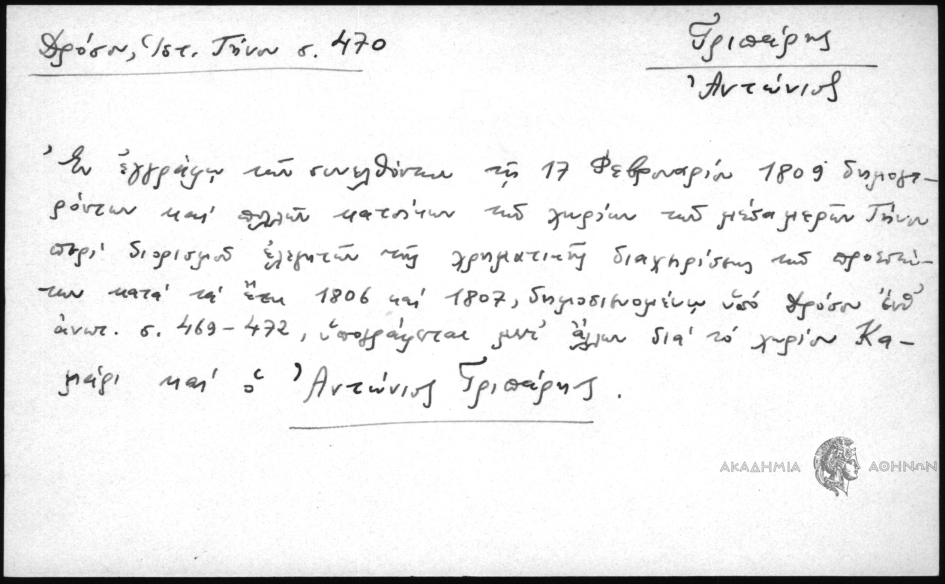 Δρόσου, Ἱστ. Τήνου σ. 470
Γριπάρης
Ἀντώνιος
Ἐν ἐγγράφῳ τῶν συνελθόντων τῇ 17 Φεβρουαρίου 1809 δημογε-
ρόντων καὶ πολλῶν κατοίκων τῶν χωρίων τῶν μέσα μερῶν Τήνου
περὶ διορισμοῦ ἐλεγκτῶν τῆς χρηματικῆς διαχειρίσεως τῶν προεστώ-
των κατὰ τὰ ἔτη 1806 καὶ 1807, δημοσιευομένῳ ὑπὸ Δρόσου ἐνθ'
ἀνωτ. σ. 469-472, ὑπογράφεται μετ' ἄλλων διὰ τὸ χωρίον Κα-
μάρι καὶ ὁ Ἀντώνιος Γριπάρης.
ΑΚΑΔΗΜΙΑ ΑΘΗΝΩΝ